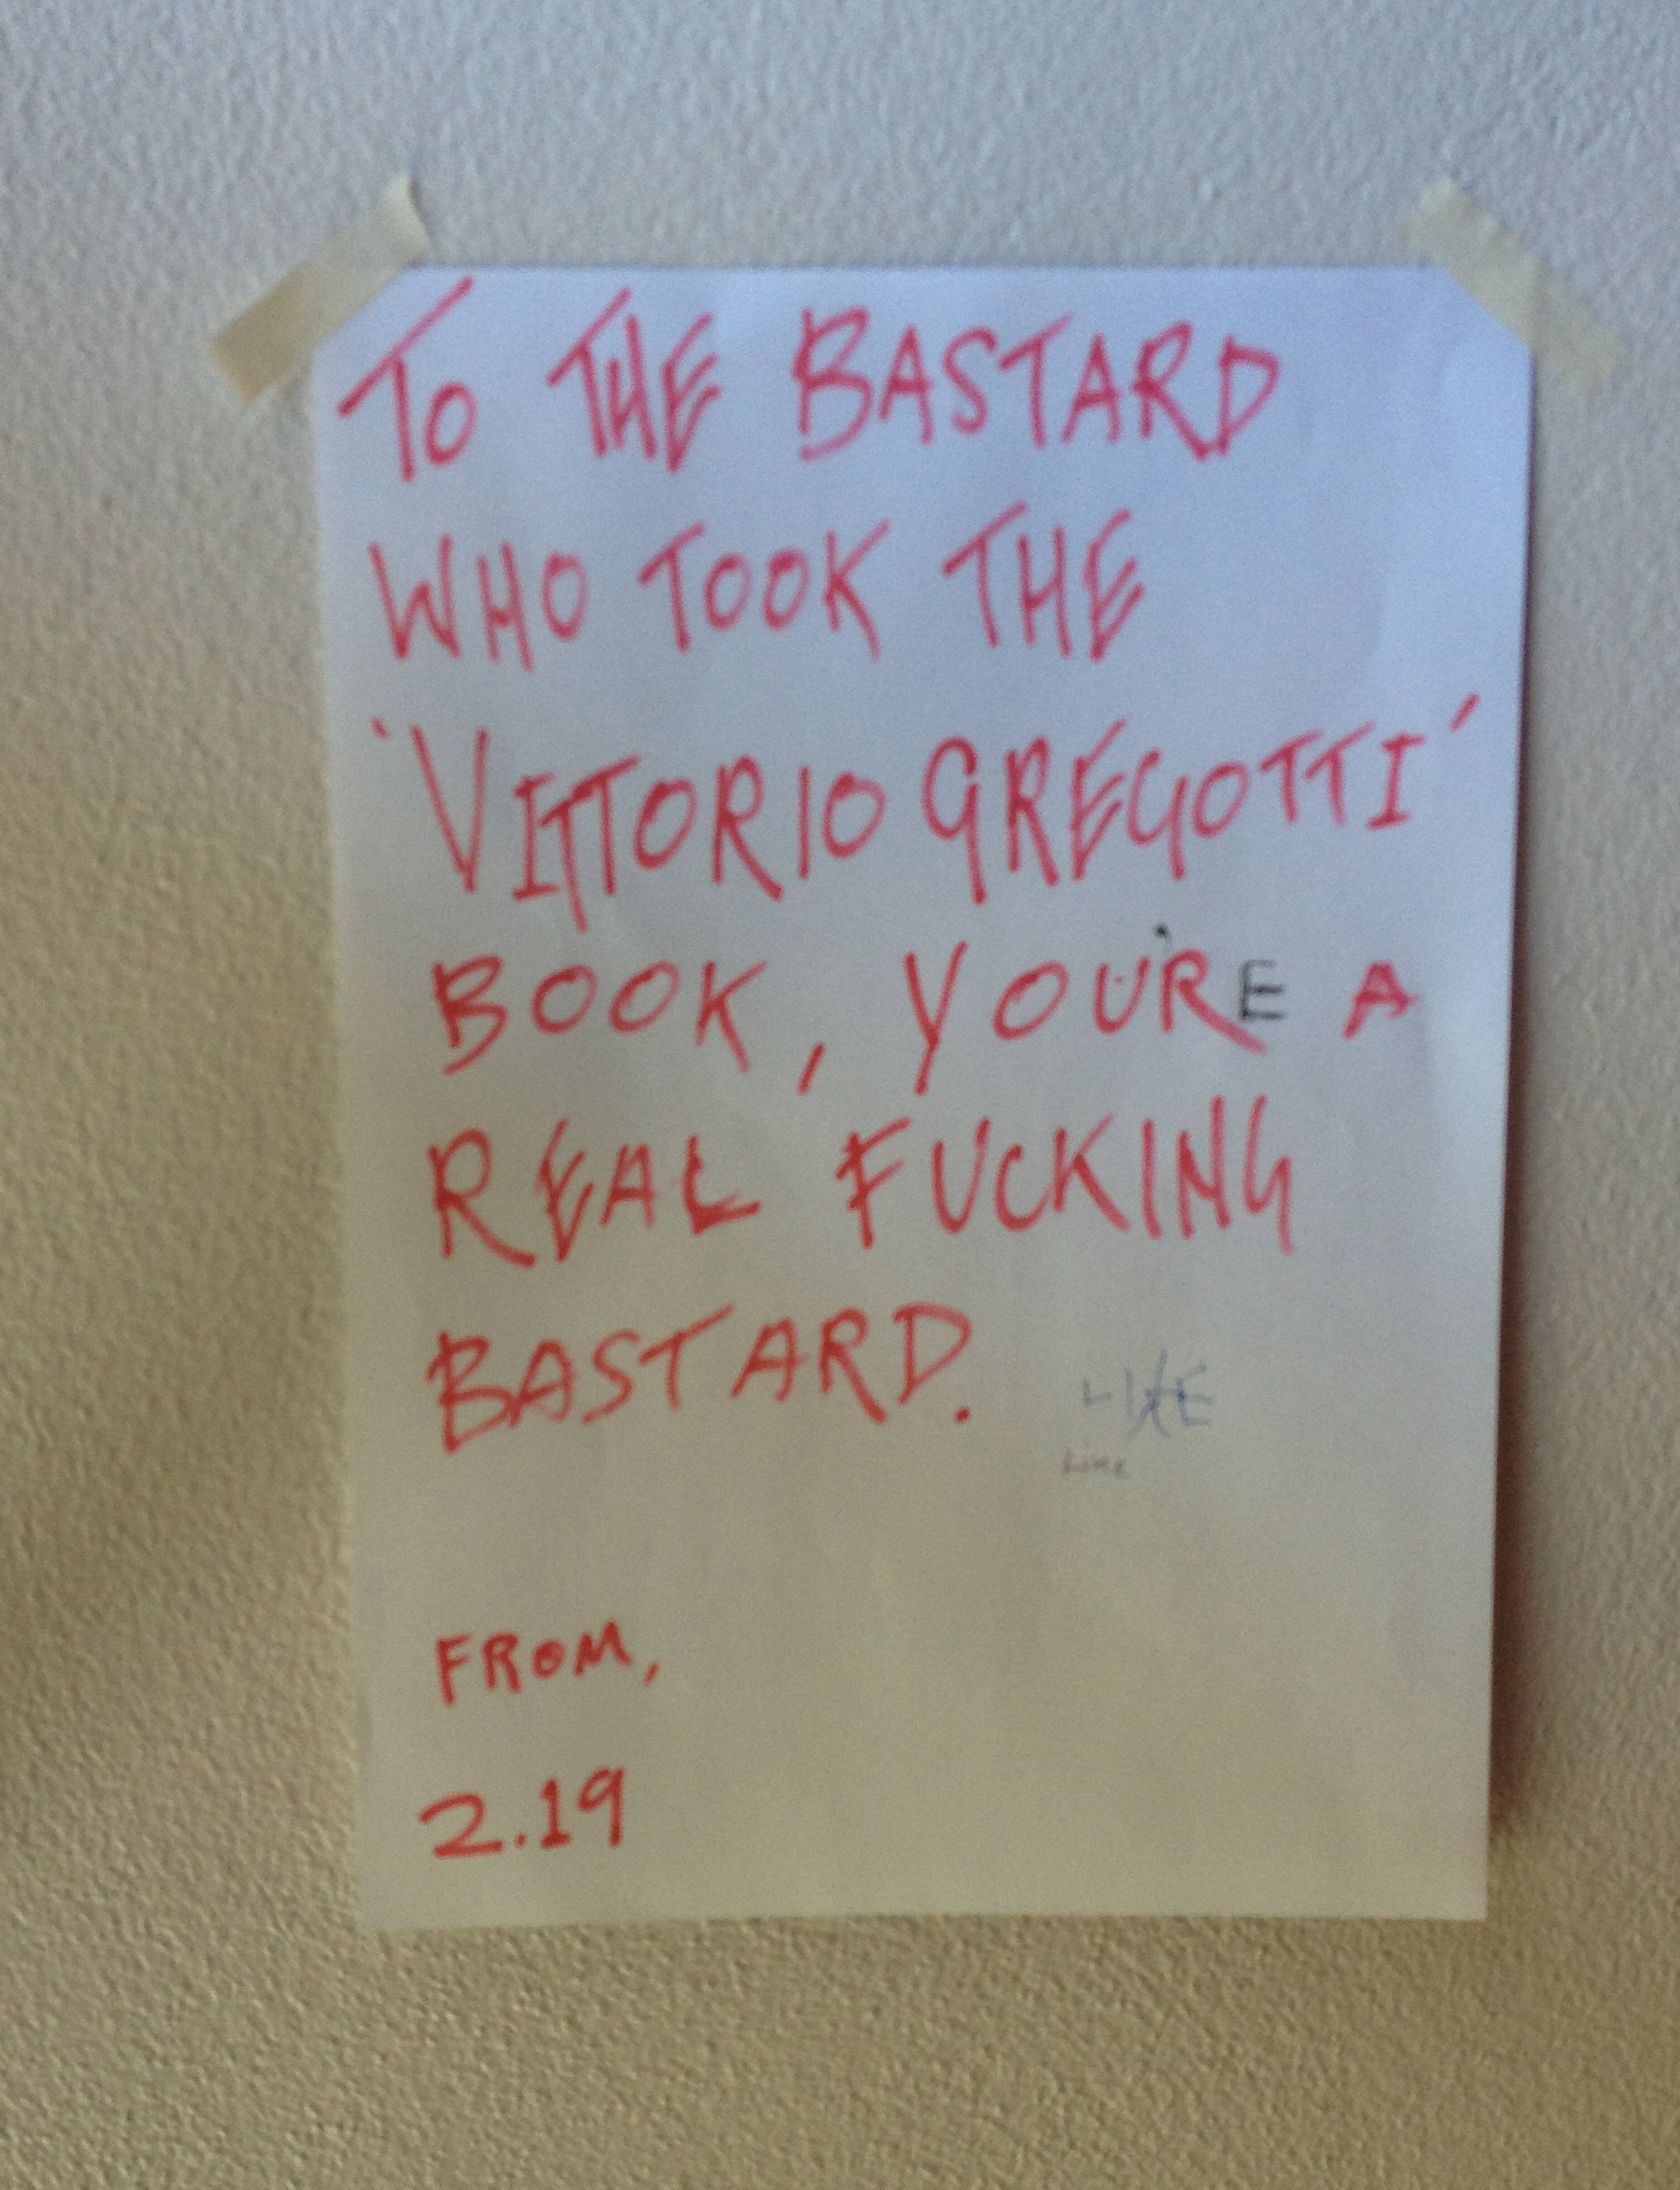 TO THE BASTARD
WHO TOOK THE
'VITTORIO GREGOTTI'
BOOK, YOU'RE A
REAL FUCKING
BASTARD.
LIKE
Like
FROM,
2.19